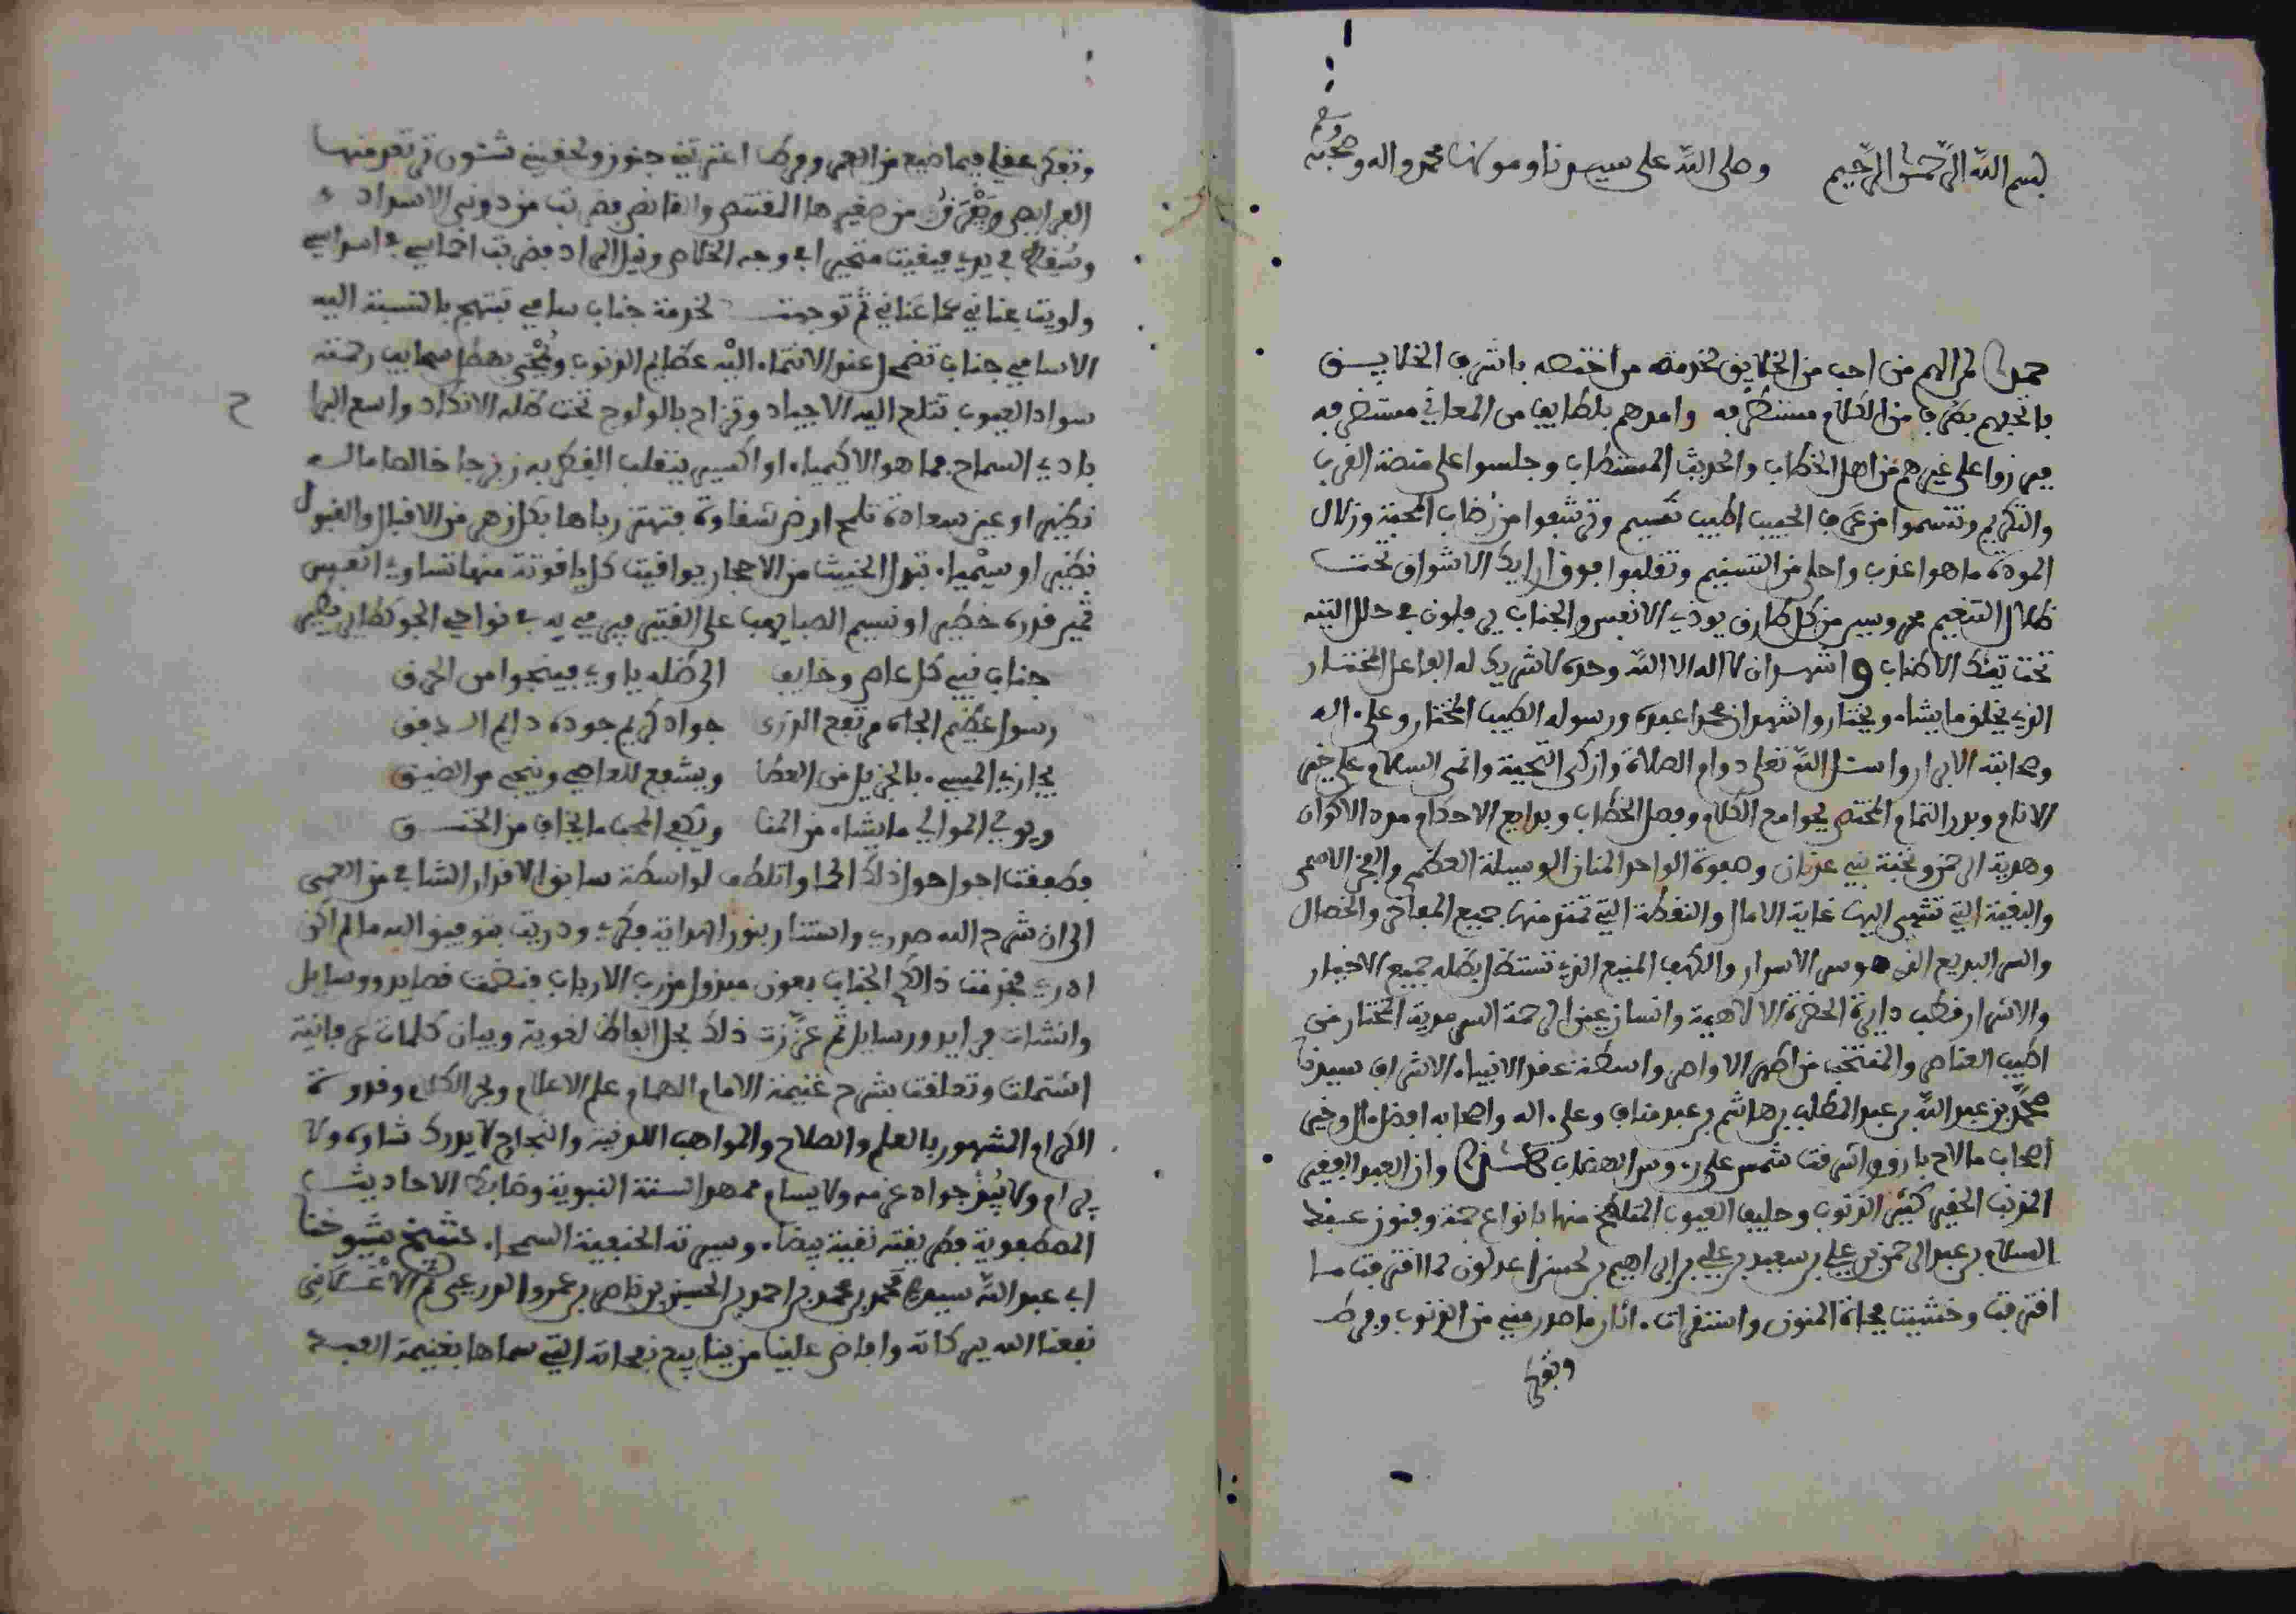 بسم الله الرحمن الرحيم وصلى الله على سيدنا ومولانا محمد واله وصحبه
حمدا لمن الهم من احب من الخلايق لخدمة من اختصه باشرف الخلايق
فاتحفهم بطرف من الكلام مستطرفه وامدهم بلطايف من المعاني مستظرفه
فبرزوا على غيرهم من اهل الخطاب والحديث المستطاب وجلسوا على منصة القرب
والتكريم وتنسموا من عرف الحبيب اطيب نسيم وترشفوا من رضاب المحبة وزلال
المودة ما هو اعذب واحلى من التسنيم وتقلبوا فوق ارايك الاشواق تحت
ظلال التنعيم محروسين من كل طارق يوذي الانفس والجناب يرفلون في حلل التيه
تحت تلك الاطناب واشهد ان لا اله الا الله وحده لا شريك له الفاعل المختار
الذي يخلق ما يشاء ويختار واشهد ان محمدا عبده ورسوله الطيب المختار وعلى اله
وصحابته الابرار واسئل الله تعلى دوام الصلاة وازكى التحية وانمى السلام على خير
الانام وبدر التمام المختص بجوامع الكلام وفصل الخطاب وبدايع الاحكام مدد الاكوان
وهدية الرحمن ونخبة بني عدنان وصفوة الواحد المنان الوسيلة العظمى والفخر الاسمى
والبغية التي تنتهي اليها غاية الامال والنقطة التي تمتد منها جميع المفاخر والخصال
والسر البديع الذي هو سر الاسرار والكهف المنيع الذي تستظل بظله جميع الاخيار
والاشرار قطب دايرة الحضرة الالاهية وانسان عين الرحمة السرمدية المختار من
اطيب العناصر والمنتخب من اطهر الاواصر واسطة عقد الانبياء الاشراف سيدنا
محمد بن عبد الله بن عبد المطلب بن هاشم بن عبد مناف وعلى اله واصحابه افضل ال وخير
اصحاب ما لاح بارق واشرقت شمس على روس الهضاب وان العبد الفقير
المذنب الحقير كثير الذنوب وحليف العيوب المتلطخ منها بانواع جمة وفنون عبد
السلام بن عبد الرحمن بن علي بن سعيد بن علي بن ابراهيم بن لما اقترفت ما
اقترفت وخشيت فجاة المنون واستقرات اثار ما صدر مني من الذنوب وفرط
وتفكر
وتفكر عقلي فيما ضيع من العمر وفرط اعترتني جنون ولحقتني شئون
الفرايص من صغيرها المقتنص والقانص فضربت من دوني الاسداد
وسقط في يدي فبقيت متحيرا في وجه الخلاص ونيل المراد فضربت اخماسي في اسداسي
ولويت عناني عما عناني ثم توجهت لخدمة جناب سامي تبتهج بالنسبة اليه
الاسامي جناب تضمحل عند الانتماء اليه عظايم الذنوب ويمحى بهطل سحايب رحمته
سواد العيوب تتلع اليه الاجياد وتزاح بالولوج تحت ظله الانكاد واسع البر
بادي السماح فما هو الا كيمياء او اكسير ينقلب الفكر به زبرجا خالصا ما له
نظير او عين سعادة تلمح ارض شقاوة فتهتز رباها بكل زهر من الاقبال والقبول
نظير او سيمياء تبدل الخبيث من الاحجار يواقيت كل ياقوتة منها تساوي انفس
خطير او نسيم الصبا يهب على الفتى فيرمي به في نواحي الجو كطاير يطير
جناب نبي كل عاص وخايف الى ظله ياوي فينجوا من الحرق
رسول عظيم الجاه مرتفع الذرى جواد كريم جوده دايم الدفق
يجازي المسيء بالجزيل من العطا ويشفع للعاصي وينجي من الضيق
ويولي الموالي ما يشاء من المنا ويكفي المحب ما يخاف من الخنق
فطفقت اجول حول ذلك الحما واتلطف لواسطة سابق الاقدار الشافي من العمى
الى ان شرح الله صدري واستنار بنور الهداية فكري ودريت بتوفيق الله ما لم اكن
ادري فخدمت ذالك الجناب بعون مبذول من رب الارباب فنظمت قصايد ووسايل
وانشات فرايد ورسايل ثم عززت ذلك بحل الفاظ لغوية وبيان كلمات عرفانية
اشتملت وتعلقت بشرح غنيمة الامام الهمام علم الاعلام وبحر الكلام وقدوة
الكرام المشهور بالعلم والصلاح والمواهب اللدنية والنجاح لا يدرك شاوه ولا
يرام ولا جواد عزمه ولا يسام ممهد السنة النبوية وضابط الاحاديث
المصطفوية فطريقته نقية بيضاء وسيرته الحنيفية السمحاء شيخ شيوخنا
ابي عبد الله سيدي محمد بن محمد بن احمد بن الحسين بن ناصر بن عمرو الدرعي ثم الاغلاني
نفعنا الله ببركاته وافاض علينا من ينابيع نفحاته التي سماها بغنيمة العبد